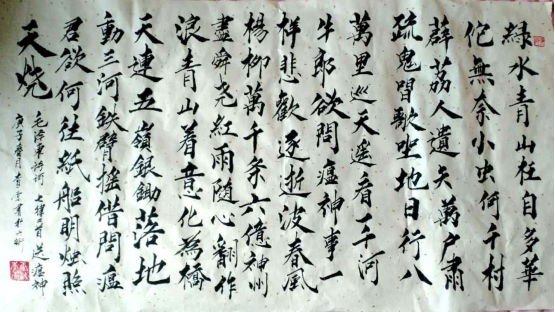 緑水青山枉自多華
佗無奈小虫何千村
薜荔人遺矢萬户肅
疏鬼唱歌坐地日行八
萬里巡天遥看一千河
牛郎欲問瘟神事一
样悲歡逐逝波春風
楊柳萬千条六億神州
盡舜尧紅雨随心翻作
浪青山着意化為橋
天連五嶺銀鋤落地
動三河鉄臂摇借問瘟
君欲何往紙船明燭照
天烧
毛澤東詩詞 七律二首 送瘟神
庚子